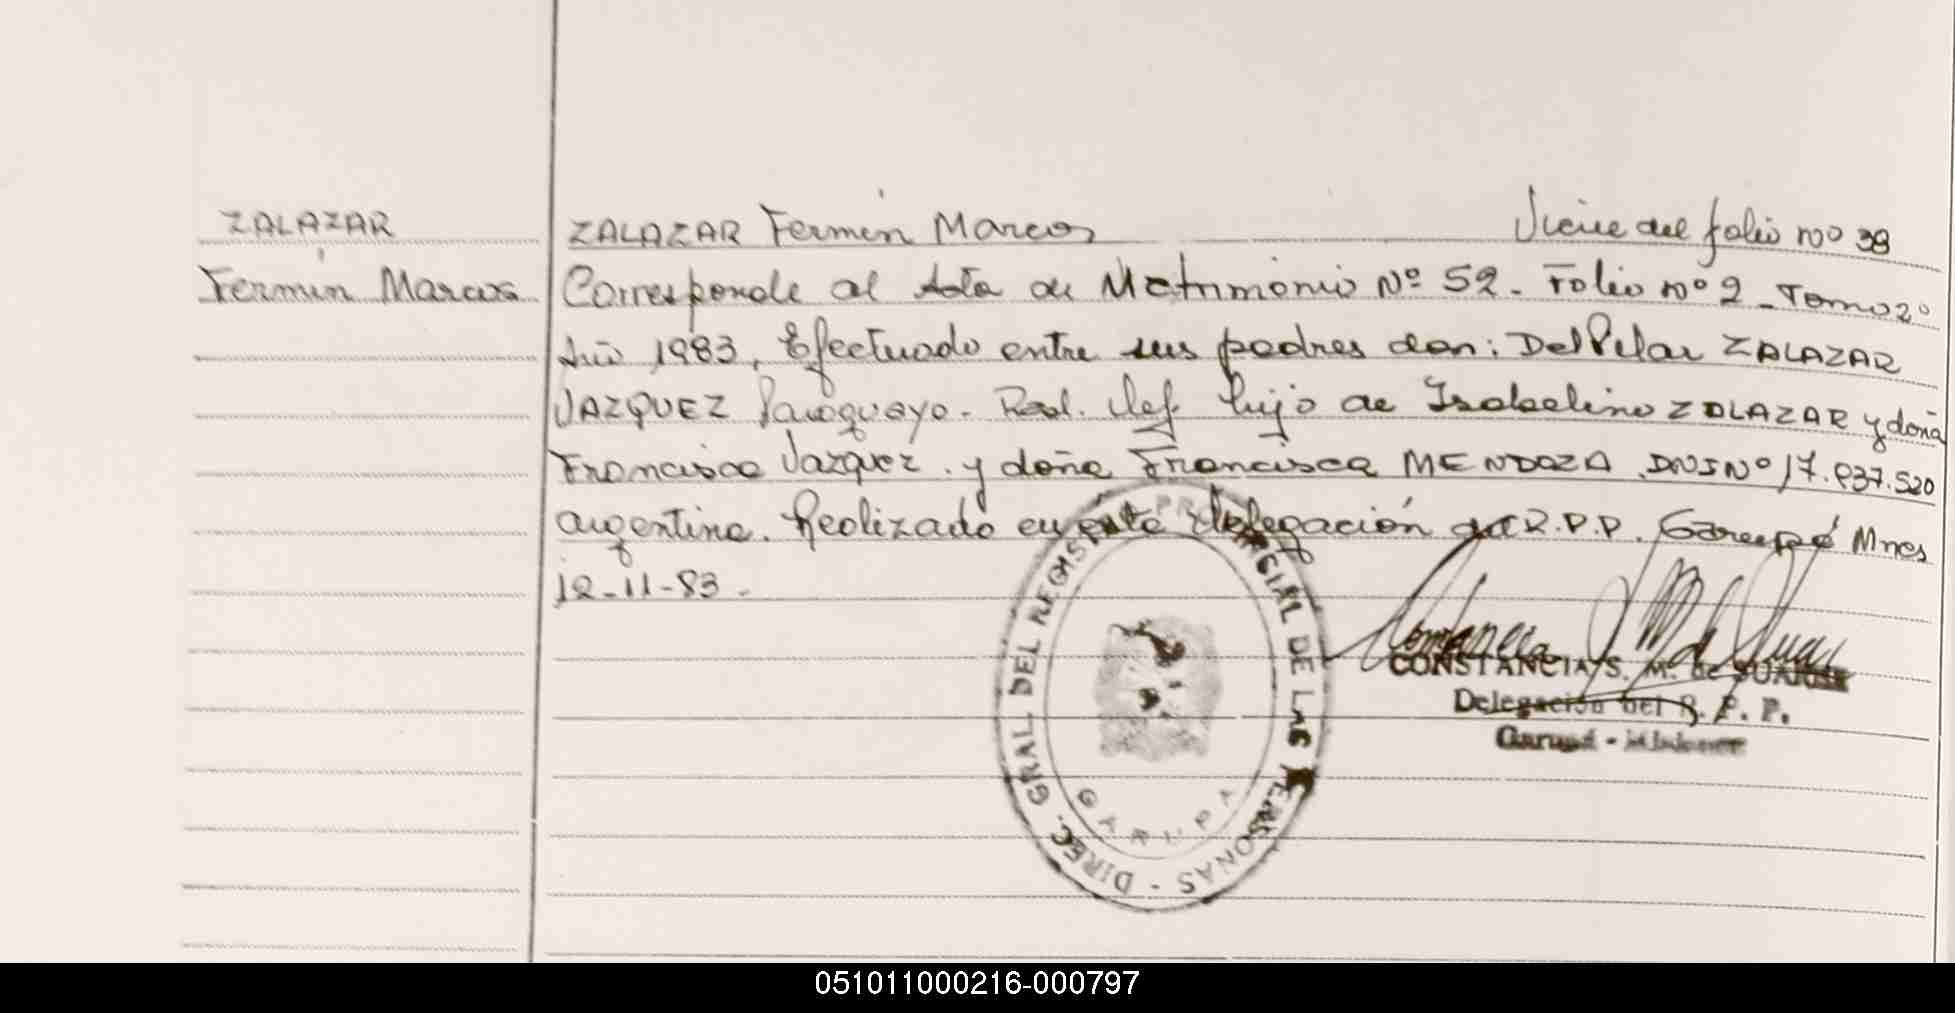 ZALAZAR
Fermín Marcos
ZALAZAR Fermín Marcos Viene del folio nº 38
Corresponde al Acta de Matrimonio Nº 52 - Folio nº 2 - Tomo 2º
Año 1983, Efectuado entre sus padres don: Del Pilar ZALAZAR
VAZQUEZ Paraguayo. hijo de Isabelino ZALAZAR y doña
Francisca Vazquez. y doña Francisca MENDOZA DNI Nº 17.837.520
argentina. Realizado en esta delegación del R.P.P. Garupá Mnes
12-11-83.
DIREC. GRAL DEL REGISTRO PROVINCIAL DE LAS PERSONAS -
GARUPA
CONSTANCIA S. M. de
Delegación del R. P. P.
Garupá - Misiones
051011000216-000797